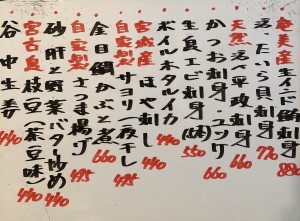 奄美産生インド鮪刺身 880
活、たいら貝刺身 770
天然 活〆平政刺身 660
かつお刺身、ユッケ 660
生良エビ刺身 550
ボイルホタルイカ 440
宮城産 ほや刺し 440
自家製サヨリ一夜干し 495
金目鯛かぶと煮 660
自家製さつま揚げ 495
砂肝と野菜バター炒め 440
宮古島枝豆(茶豆味) 440
谷中生姜 440